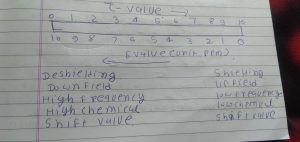 τ-value →
0 1 2 3 4 5 6 7 8 9 10
10 9 8 7 6 5 4 3 2 1 0
δ value (unit PPM)
Deshielding Shielding
Downfield Upfield
High frequency low frequency
High chemical low chemical
Shift value Shift value